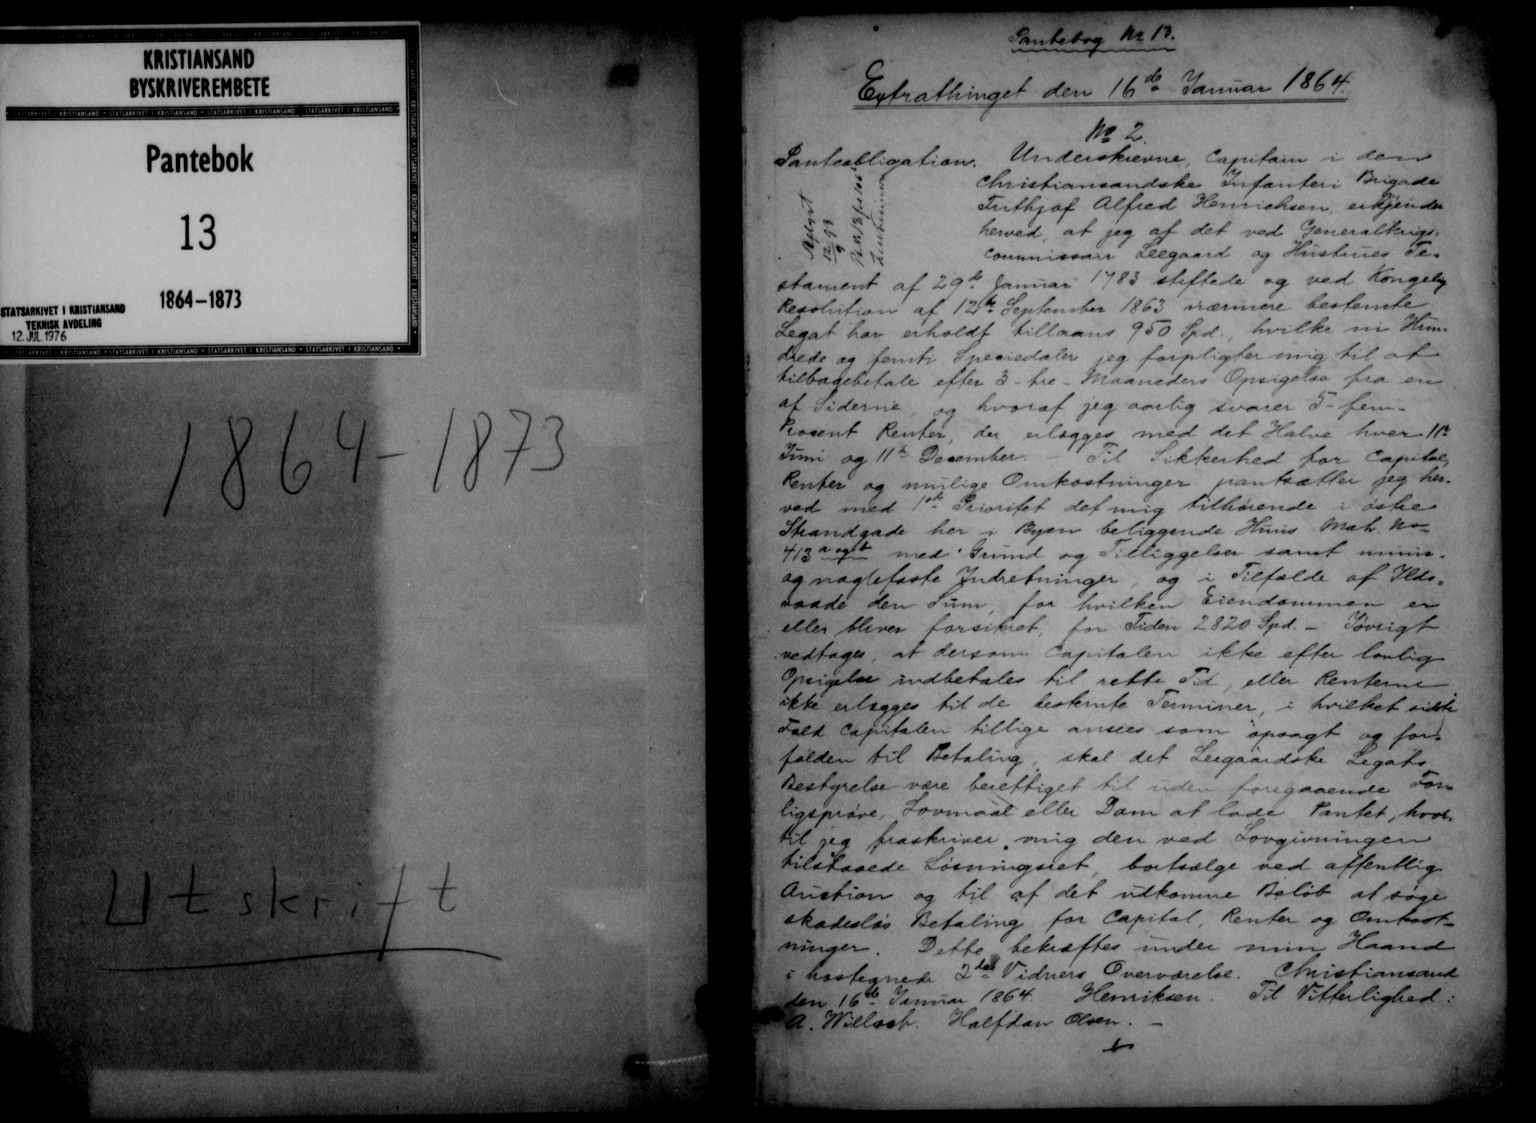 KRISTIANSAND
BYSKRIVEREMBETE
Pantebok
13
1864-1873
STATSARKIVET I KRISTIANSAND
TEKNISK AVDELING
12. JUL. 1976
1864-1873
Utskrift
Pantebog No 13.
Extrathinget den 16de Januar 1864.
No 2.
Panteobligation. Underskrevne, Capitain i den
Christiansandske Infanteri Brigade
Frithjof Alfred Henrichsen, erkjender
herved, at jeg af det ved Generalkrigs-
commissair Leegaard og Hustrues Te-
stament af 29de Januar 1783 stiftede og ved Kongelig
Resolution af 12te September 1863 nærmere bestemte
Legat har erholdt tillaans 950 Spd., hvilke ni Hun-
drede og femti Speciedaler jeg forpligter mig til at
tilbagebetale efter 3-tre-Maaneders Opsigelse fra en
af Siderne, og hvoraf jeg aarlig svarer 5-fem-
Procent Renter, der erlægges med det Halve hver 11te
Juni og 11te December. - Til Sikkerhed for Capital,
Renter og mulige Omkostninger pantsætter jeg her-
ved med 1ste Prioritet det mig tilhørende i østre
Strandgade her i Byen beliggende Huus Mat. No
413 a og b med Grund og Tilliggelser samt muur-
og naglefaste Indretninger, og i Tilfælde af Ilds-
vaade den Sum, for hvilken Eiendommen er
eller bliver forsikret, for Tiden 2820 Spd. - Iøvrigt
vedtages, at dersom Capitalen ikke efter lovlig
Opsigelse indbetales til rette Tid, eller Renterne
ikke erlægges til de bestemte Terminer, i hvilket sidste
Fald Capitalen tillige ansees som opsagt og for-
falden til Betaling, skal det Leegaardske Legats
Bestyrelse være berettiget til uden foregaaende For-
ligsprøve, Lovmaal eller Dom at lade Pantet, hvor-
til jeg fraskriver mig den ved Lovgivningen
tilstaaede Løsningsret, bortsælge ved offentlig
Auction og til af det udkomne Beløb at søge
skadesløs Betaling for Capital, Renter og Omkost-
ninger. Dette bekræftes under min Haand
i hostegnede 2des Vidners Overværelse. Christiansand
den 16de Januar 1864. Henriksen. Til Vitterlighed:
A. Halfdan Olsen. -